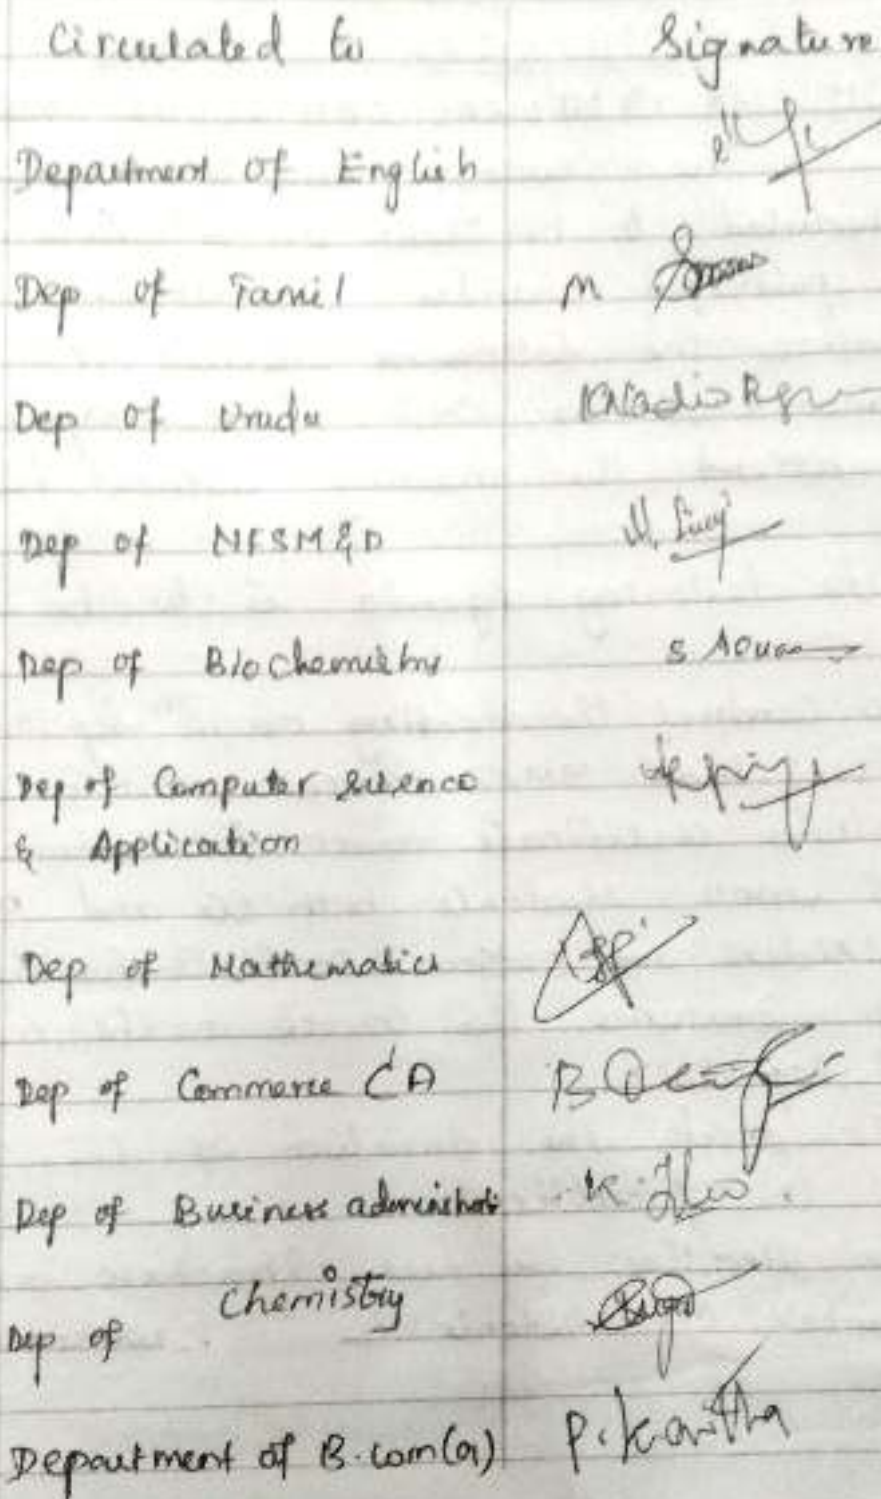 Circulated to Signature
Department of English
Dep of Tamil M
Dep of Urudu
Dep of NFSM&D M. Lucy
Dep of BioChemistry S
Dep of Computer Science
& Application
Dep of Mathematics
Dep of Commerce CA B
Dep of Business administrati K.
Chemistry
Dep of
Department of B.com(a) P. Kavitha